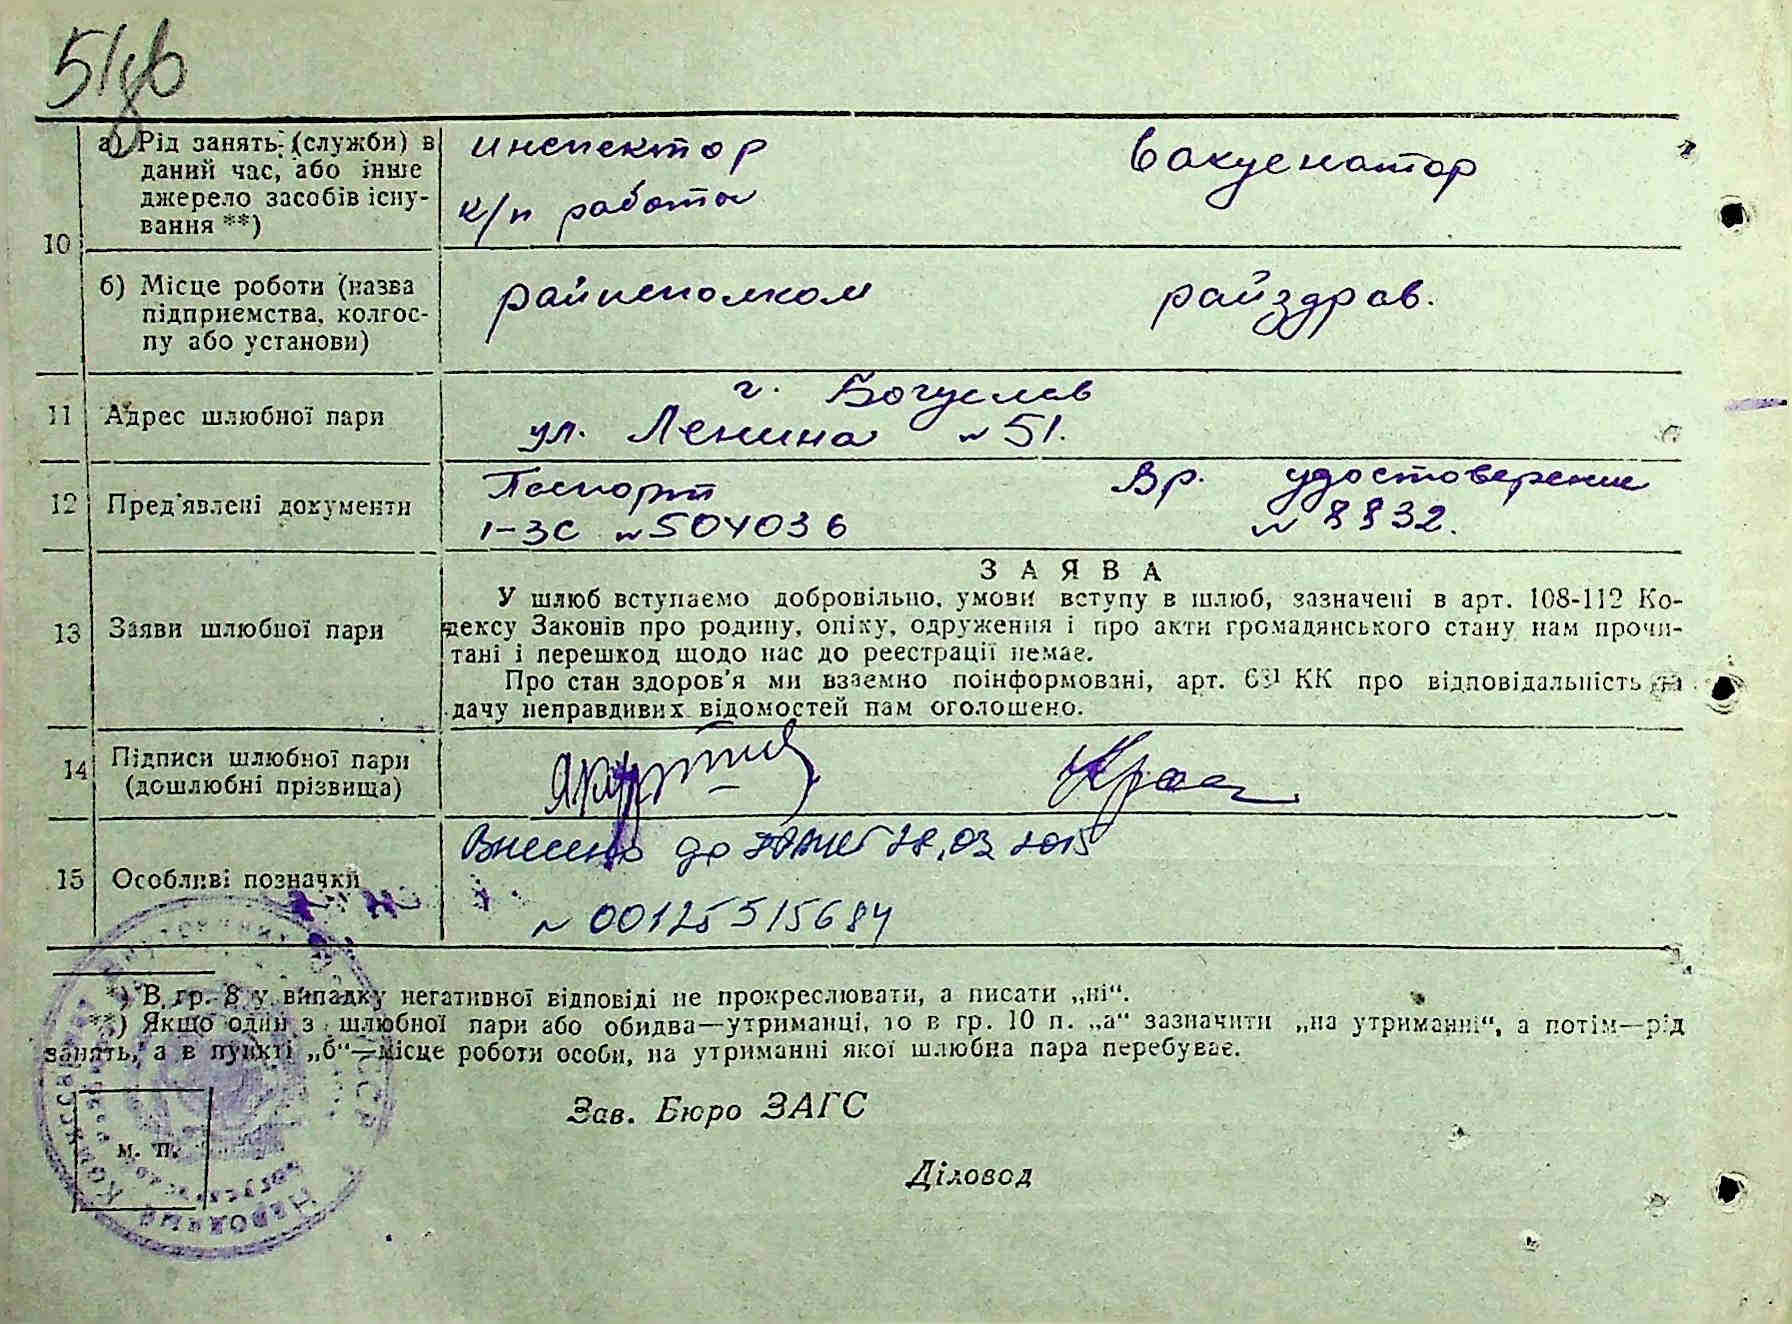 51
а) Рід занять (служби) в
даний час, або інше
джерело засобів існу-
вання **)
инспектор
к/п работа
вакуенатор
10
б) Місце роботи (назва
підприємства, колгос-
пу або установи)
райисполком
райздрав.
11
Адрес шлюбної пари
г. Богуслав
ул. Ленина № 51.
12
Пред'явлені документи
Паспорт
1-ЗС № 504036
Вр. удостоверение
№ 8832.
13
Заяви шлюбної пари
ЗАЯВА
У шлюб вступаємо добровільно, умови вступу в шлюб, зазначені в арт. 108-112 Ко-
дексу Законів про родину, опіку, одруження і про акти громадянського стану нам прочи-
тані і перешкод щодо нас до реєстрації немає.
Про стан здоров'я ми взаємно поінформовані, арт. КК про відповідальність за
дачу неправдивих відомостей нам оголошено.
14
Підписи шлюбної пари
(дошлюбні прізвища)
15
Особливі позначки
Внесено до 28.03 2015
№ 00125515684
*) В гр. 8 у випадку негативної відповіді не прокреслювати, а писати „ні“.
**) Якщо один з шлюбної пари або обидва—утриманці, то в гр. 10 п. „а“ зазначити „на утриманні“, а потім—рід
занять, а в пункті „б“—місце роботи особи, на утриманні якої шлюбна пара перебуває.
Зав. Бюро ЗАГС
Діловод
м. п.